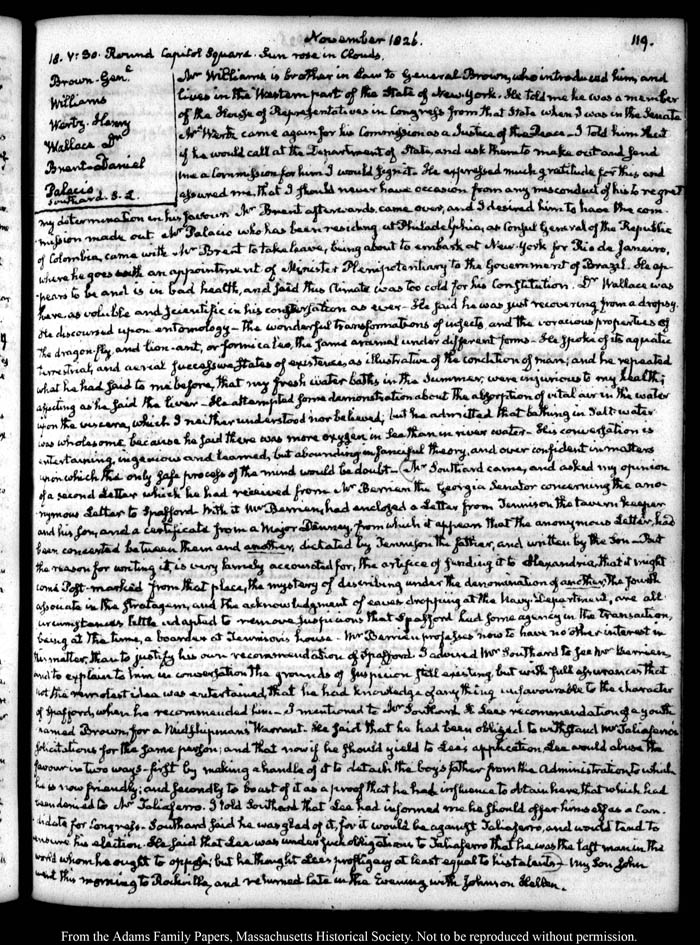 November 1826.
119.
18. V: 30. Round Capitol Square. Sun rose in Clouds.
Brown. Genl.
Williams
Wertz. Henry
Wallace Dr
Brent-Daniel
Palacio
Southard. S. L.
Mr Williams is brother in Law to General Brown, who introduced him, and
lives in the Western part of the State of New York. He told me he was a member
of the House of Representatives in Congress from that State when I was in the Senate
Mr Wertz came again for his Commission as a Justice of the Peace_ I told him that
if he would call at the Department of State, and ask them to make out and send
me a Commission for him I would sign it. He expressed much gratitude for this and
assured me, that I should never have occasion from any misconduct of his to regret
my determination in his favour. Mr Brent afterwards came over, and I desired him to have the com-
mission made out. Mr Palacio who has been residing at Philadelphia, as Consul General of the Republic
of Colombia, came with Mr Brent to take leave, being about to embark at New York for Rio de Janeiro,
where he goes with an appointment of Minister Plenipotentiary to the Government of Brazil. He ap-
pears to be and is in bad health, and said this Climate was too cold for his Constitution. Dr Wallace was
here, as voluble and scientific in his conversation as ever_ He said he was just recovering from a dropsy.
He discoursed upon entomology_ the wonderful transformations of insects, and the voracious properties of
the dragon-fly, and lion-ant, or formica leo, the same animal under different forms_ He spoke of its aquatic
terrestrial, and aerial successive States of existence, as illustrative of the condition of man; and he repeated
what he had said to me before, that my fresh water baths in the Summer, were injurious to my health;
affecting as he said the liver_ He attempted some demonstration about the absorption of vital air in the water
upon the viscera, which I neither understood nor believed; but he admitted that bathing in Salt water
was wholesome because he said there was more oxygen in Sea than in river water_ His conversation is
entertaining, ingenious and learned, but abounding in fanciful theory, and over confident in matters
upon which the only safe process of the mind would be doubt_ Mr Southard came, and asked my opinion
of a second Letter which he had received from Mr Berrien the Georgia Senator concerning the ano-
nymous Letter to Spafford. With it Mr Berrien, had enclosed a Letter from Tennison the tavern keeper
and his Son, and a certificate from a Major Denney, from which it appears that the anonymous Letter, had
been concerted between them and another, dictated by Tennison the father, and written by the Son_ But
the reason for writing it is very lamely accounted for, the artifice of sending it to Alexandria, that it might
come Post-marked from that place, the mystery of describing under the denomination of another, the fourth
associate in the stratagem, and the acknowledgment of eaves dropping at the Navy Department, are all
circumstances little adapted to remove suspicions that Spafford had some agency in the transaction,
being at the time, a boarder at Tennison's house_ Mr Berrien professes now to have no other interest in
the matter, than to justify his own recommendation of Spafford. I advised Mr Southard to see Mr Berrien,
and to explain to him in conversation the grounds of suspicion still existing, but with full assurances that
not the remotest idea was entertained, that he had knowledge of any thing unfavourable to the character
of Spafford, when he recommended him_ I mentioned to Mr Southard H. Lee's recommendation of a youth
named Brown, for a Midshipman's Warrant. He said that he had been obliged to withstand Mr Taliaferro's
solicitations for the same person; and that now if he should yield to Lee's application, Lee would abuse the
favour in two ways_ first by making a handle of it to detach the boy's father from the Administration to which
he is now friendly; and secondly to boast of it as a proof that he had influence to obtain here, that which had
been denied to Mr Taliaferro. I told Southard that Lee had informed me he should offer himself as a Can-
didate for Congress. Southard said he was glad of it, for it would be against Taliaferro, and would tend to
ensure his election. He said that Lee was under such obligations to Taliaferro that he was the last man in the
world whom he ought to oppose; but he thought Lee's profligacy at least equal to his talents_ My Son John
went this morning to Rockville, and returned late in the Evening with Johnson Hellen.
From the Adams Family Papers, Massachusetts Historical Society. Not to be reproduced without permission.